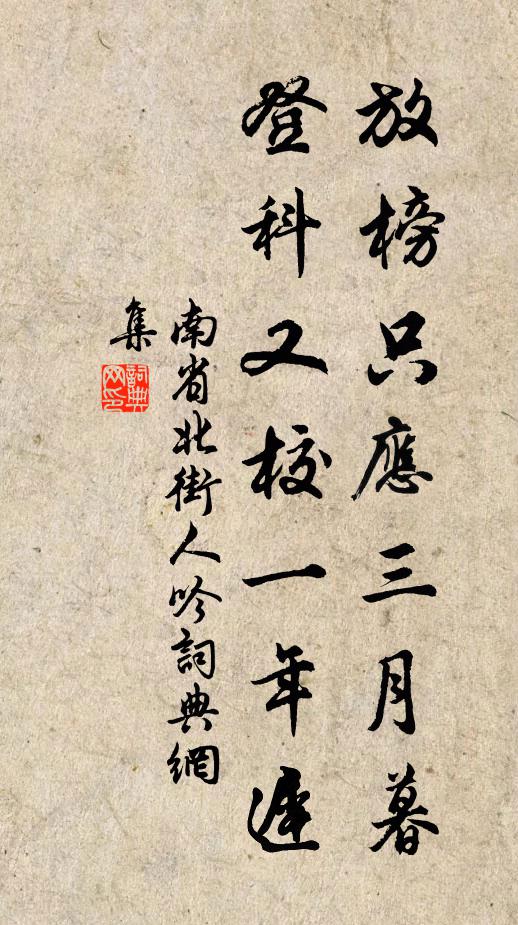 放榜只應三月暮
登科又校一年遲
南省北街人吟詞典網
集
詞典
网印